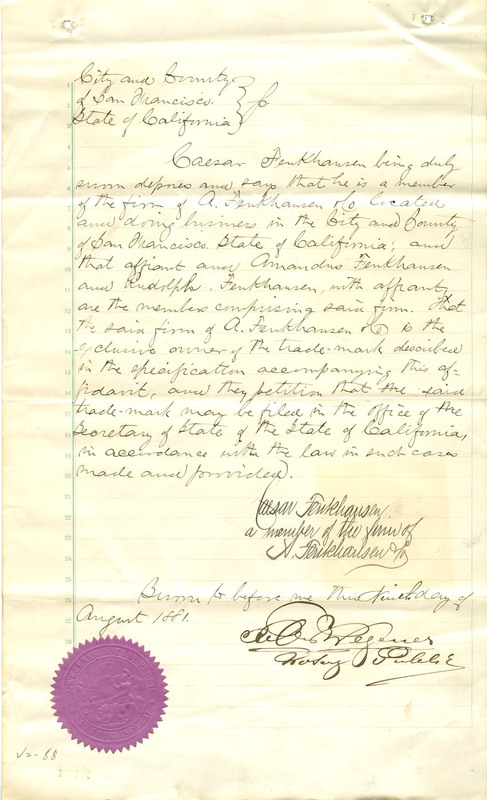 City and County
of San Francisco.
State of California
Caesar Fenkhausen being duly
sworn deposes and says that he is a member
of the firm of A. Fenkhausen & Co located
and doing business in the City and County
of San Francisco. State of California; and
that affiant and Amandus Fenkhausen
and Rudolph Fenkhausen, with affiant,
are the members comprising said firm. That
the said firm of A. Fenkhausen & Co is the
exclusive owner of the trade-mark described
in the specification accompanying this af-
fidavit, and they petition that the said
trade-mark may be filed in the office of the
Secretary of State of the State of California,
in accordance with the law in such cases
made and provided.
Caesar Fenkhausen.
a member of the firm of
A. Fenkhausen & Co
Sworn to before me this Ninth day of
August 1881.
Wegener
Notary Public